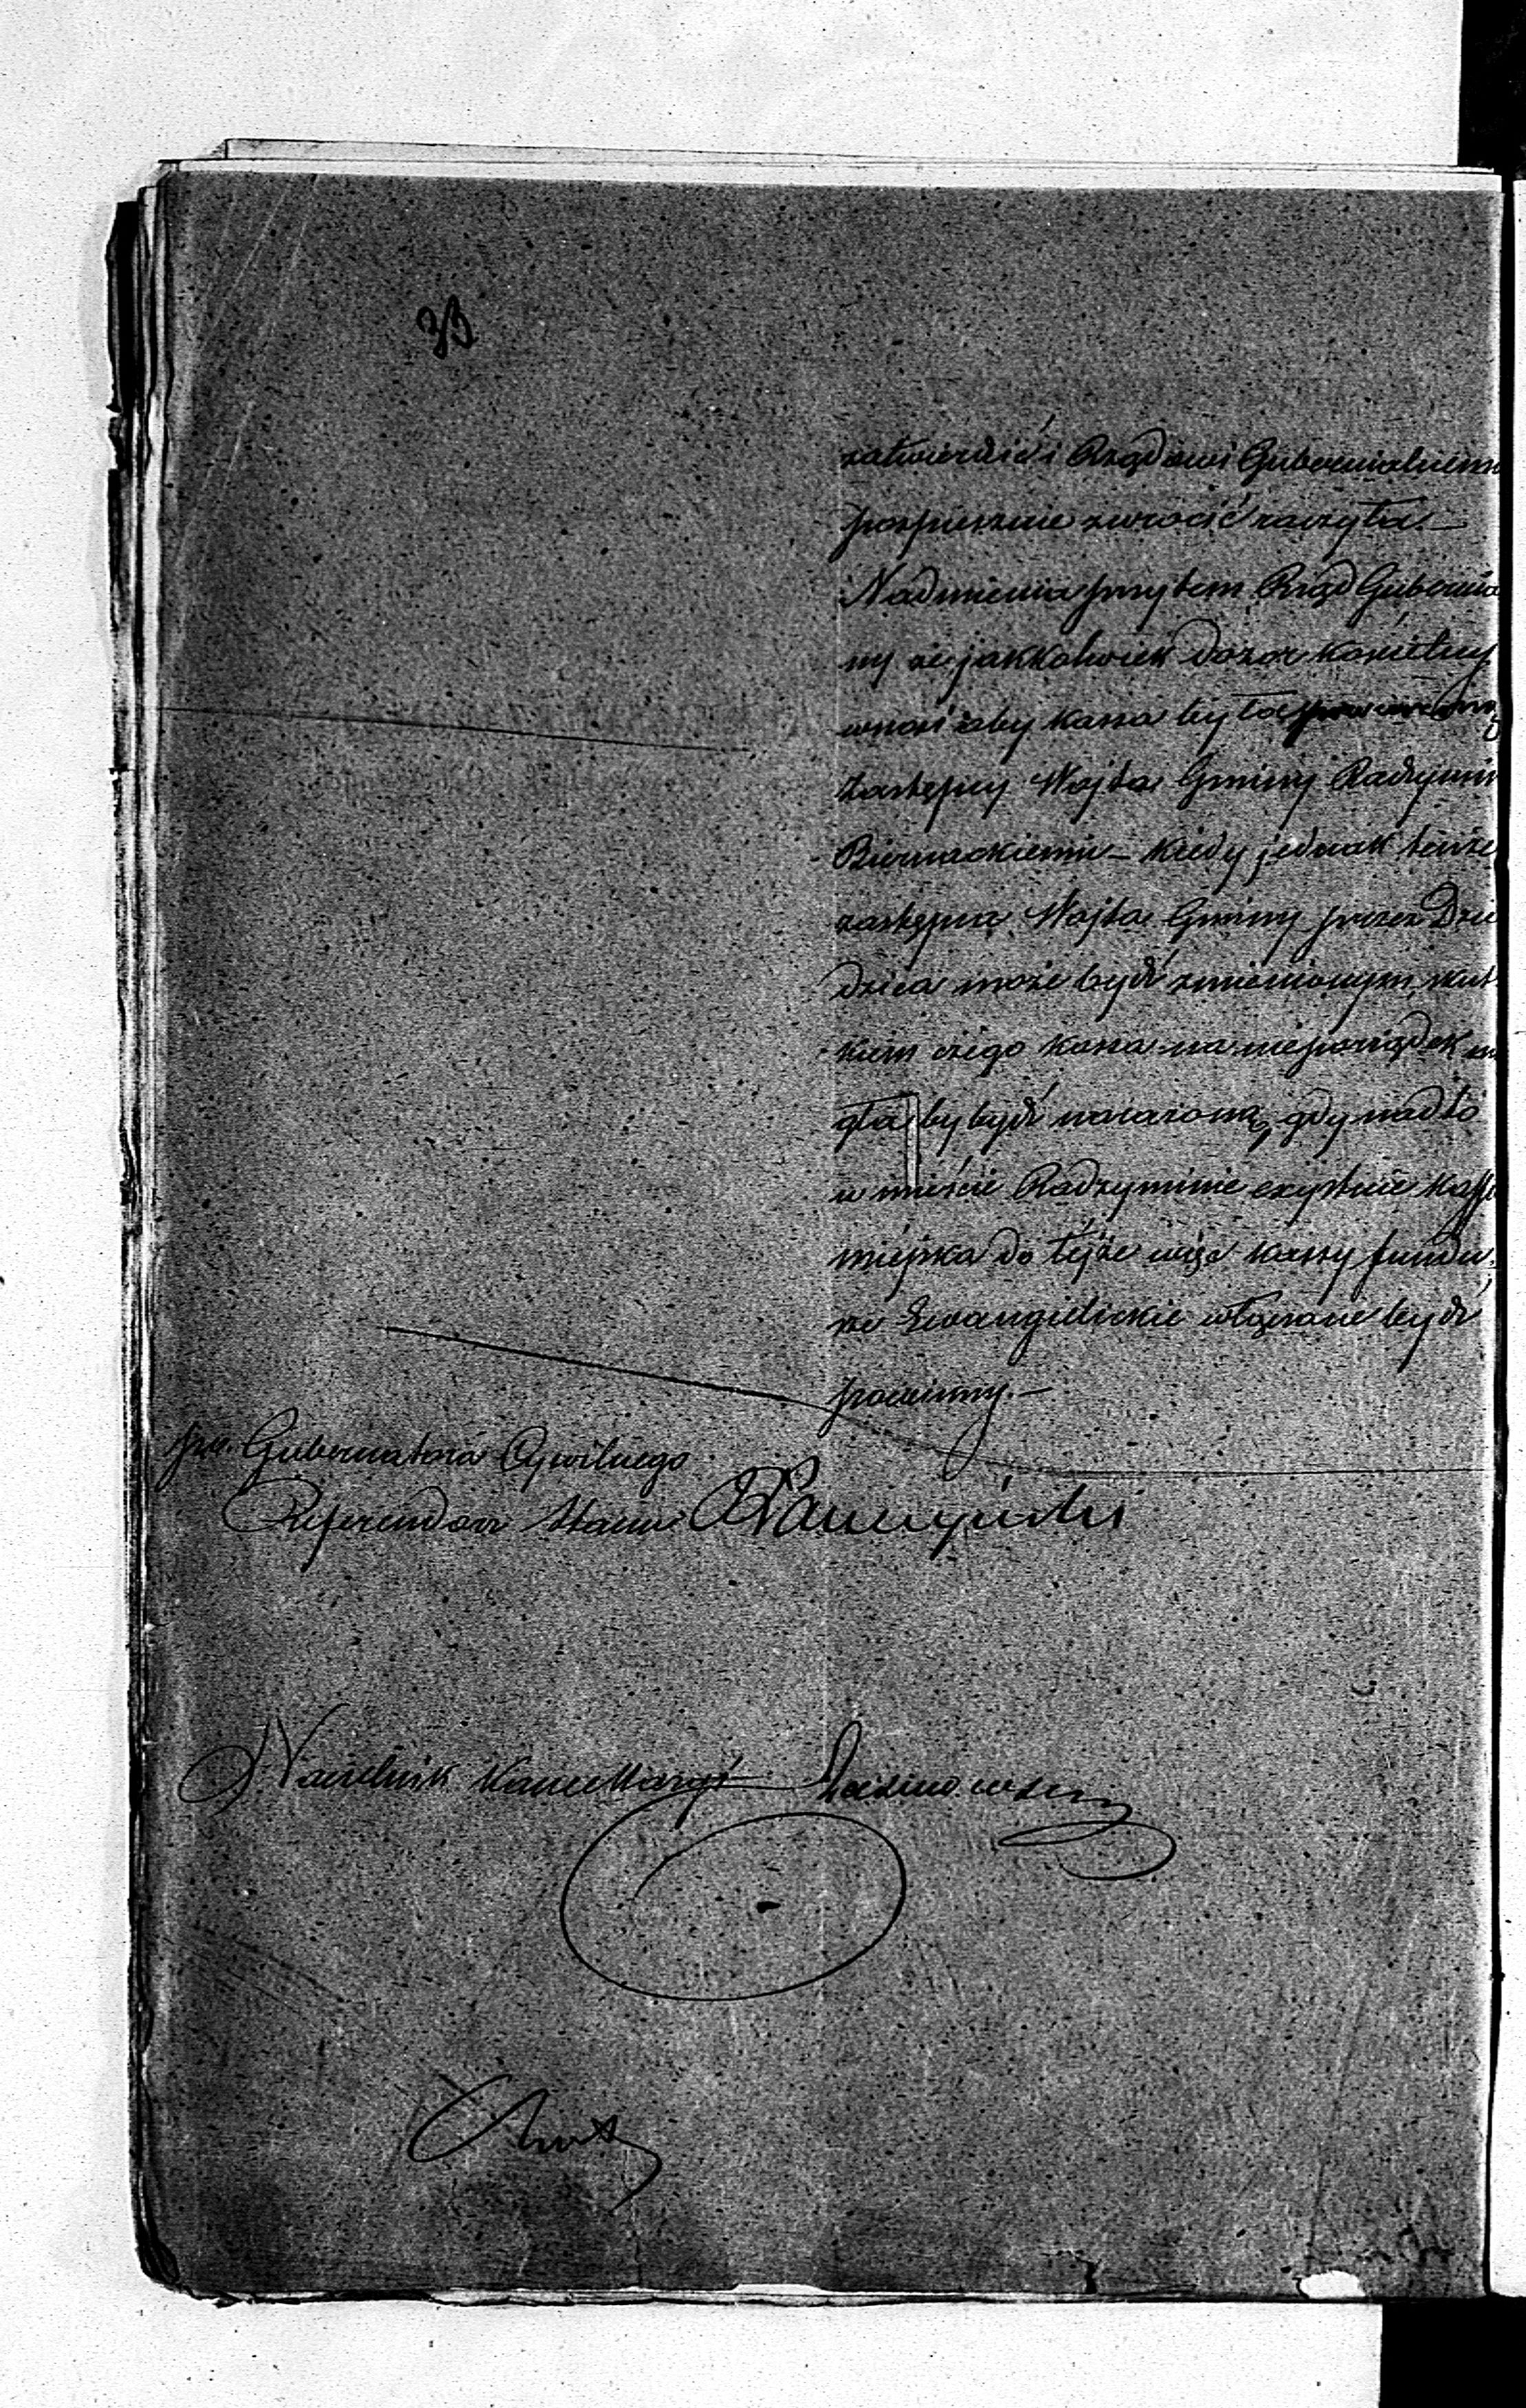 33
zatwierdzić i Rządowi Gubernialnemu
pospiesznie zwrocić raczyła —
Nadmienia przytem Rząd Gubernia
ny że jakkolwiek Dozor kościelny
wnosi aby kassa była
Zastępcy Wojta Gminy Radzymin
Biernackiemu — kiedy jednak tenże
zastępca Wojta Gminy przez Dzie
dzica może bydź zmienionym, skut
kiem czego kassa na nieporządek mo
gła by bydź narażoną, gdy nadto
w mieście Radzyminie exystuie kassa
miejska do tejże więc kassy fundu
sze Ewangielickie wtącane bydź
powinny. —
po. Gubernatora Cywilnego
Referendarz Stanu
Naczelnik Kancellaryi